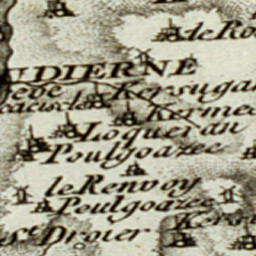 de Ro
UDIERNE
Kersugar
Kermec
Loqueran
Poulgoazec
le Renvoy
Poulgoazec
Kerso
St. Drover